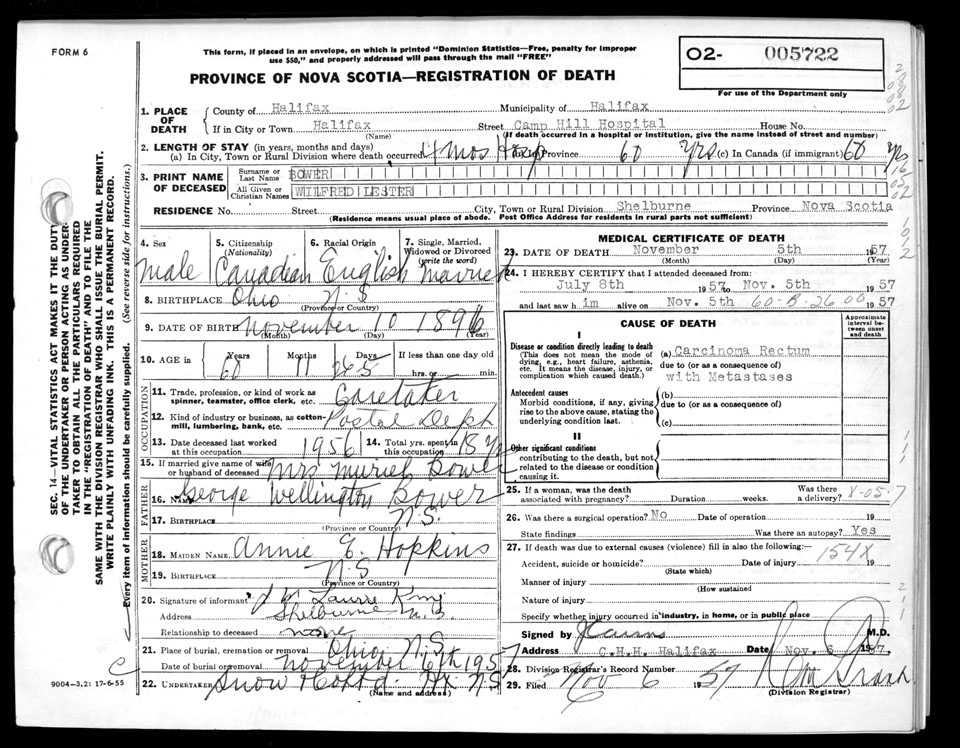 FORM 6
This form, if placed in an envelope, on which is printed "Dominion Statistics—Free, penalty for improper
use $50," and properly addressed will pass through the mail "FREE"
PROVINCE OF NOVA SCOTIA—REGISTRATION OF DEATH
02- 005722
For use of the Department only
SEC. 14—VITAL STATISTICS ACT MAKES IT THE DUTY
OF THE UNDERTAKER OR PERSON ACTING AS UNDER-
TAKER TO OBTAIN ALL THE PARTICULARS REQUIRED
IN THE "REGISTRATION OF DEATH" AND TO FILE THE
SAME WITH THE DIVISION REGISTRAR WHO SHALL ISSUE THE BURIAL PERMIT.
WRITE PLAINLY WITH UNFADING INK. THIS IS A PERMANENT RECORD.
Every item of information should be carefully supplied. (See reverse side for instructions.)
1. PLACE OF DEATH
County of Halifax Municipality of Halifax
If in City or Town Halifax Street Camp Hill Hospital House No.
(Name) (If death occurred in a hospital or institution, give the name instead of street and number)
2. LENGTH OF STAY (in years, months and days)
(a) In City, Town or Rural Division where death occurred 4 mos Hosp (b) In Province 60 Yrs (c) In Canada (if immigrant) 60 Yrs
3. PRINT NAME OF DECEASED
Surname or Last Name BOWER
All Given or Christian Names WILFRED LESTER
RESIDENCE No. Street City, Town or Rural Division Shelburne Province Nova Scotia
(Residence means usual place of abode. Post Office Address for residents in rural parts not sufficient)
4. Sex
male
5. Citizenship (Nationality)
Canadian
6. Racial Origin
English
7. Single, Married, Widowed or Divorced (write the word)
married
8. BIRTHPLACE Ohio N.S
(Province or Country)
9. DATE OF BIRTH November 10 1896
(Month) (Day) (Year)
10. AGE in Years 60 Months 11 Days 265 If less than one day old hrs. or min.
OCCUPATION
11. Trade, profession, or kind of work as spinner, teamster, office clerk, etc. Caretaker
12. Kind of industry or business, as cotton-mill, lumbering, bank, etc. Postal Dept
13. Date deceased last worked at this occupation 1956
14. Total yrs. spent in this occupation 18 Yrs
15. If married give name of wife or husband of deceased Mrs Muriel Bower
FATHER
16. NAME George Wellington Bower
17. BIRTHPLACE N.S.
(Province or Country)
MOTHER
18. MAIDEN NAME Annie E. Hopkins
19. BIRTHPLACE N.S
(Province or Country)
20. Signature of informant Laurie King
Address Shelburne N.S.
Relationship to deceased none
21. Place of burial, cremation or removal Ohio N.S
Date of burial or removal November 6th 1957
22. UNDERTAKER Snow & Co Ltd. Hx N.S
(Name and address)
9004-3.2: 17-6-55
MEDICAL CERTIFICATE OF DEATH
23. DATE OF DEATH November 5th 1957
(Month) (Day) (Year)
24. I HEREBY CERTIFY that I attended deceased from:
July 8th 1957 to Nov. 5th 1957
and last saw him alive on Nov. 5th 1957
60-B-2600
CAUSE OF DEATH
Approximate interval between onset and death
I
Disease or condition directly leading to death
(This does not mean the mode of dying, e.g., heart failure, asthenia, etc. It means the disease, injury, or complication which caused death.)
(a) Carcinoma Rectum
due to (or as a consequence of)
with Metastases
Antecedent causes
Morbid conditions, if any, giving rise to the above cause, stating the underlying condition last.
(b)
due to (or as a consequence of)
(c)
II
Other significant conditions
contributing to the death, but not related to the disease or condition causing it.
25. If a woman, was the death associated with pregnancy? Duration weeks. Was there a delivery?
8-05-7
26. Was there a surgical operation? No Date of operation 19
State findings Was there an autopsy? Yes
27. If death was due to external causes (violence) fill in also the following:—
154X
Accident, suicide or homicide? Date of injury 19
(State which)
Manner of injury
(How sustained)
Nature of injury
Specify whether injury occurred in industry, in home, or in public place
Signed by J Cairns M.D.
Address C.H.H. Halifax Date Nov. 6 1957.
28. Division Registrar's Record Number
29. Filed Nov 6 1957
(Division Registrar)